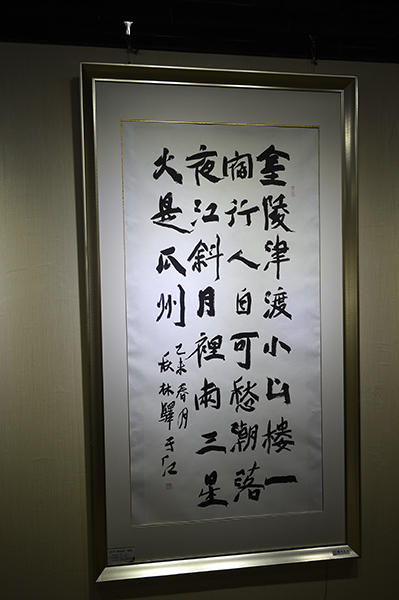 金陵津渡小山樓一
宿行人自可愁潮落
夜江斜月裡兩三星
火是瓜州
乙未春月
林驛于江